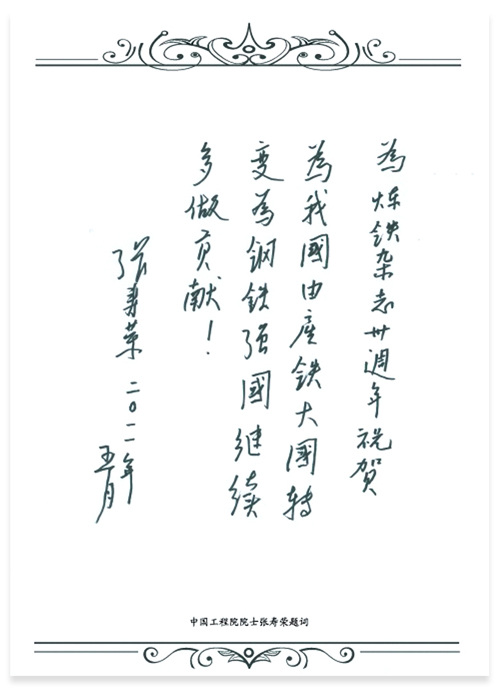 為炼铁杂志卅週年祝贺
為我國由產铁大國转
变為钢铁强國继续
多做贡献！
张寿荣 二〇一一年
五月
中国工程院院士张寿荣题词